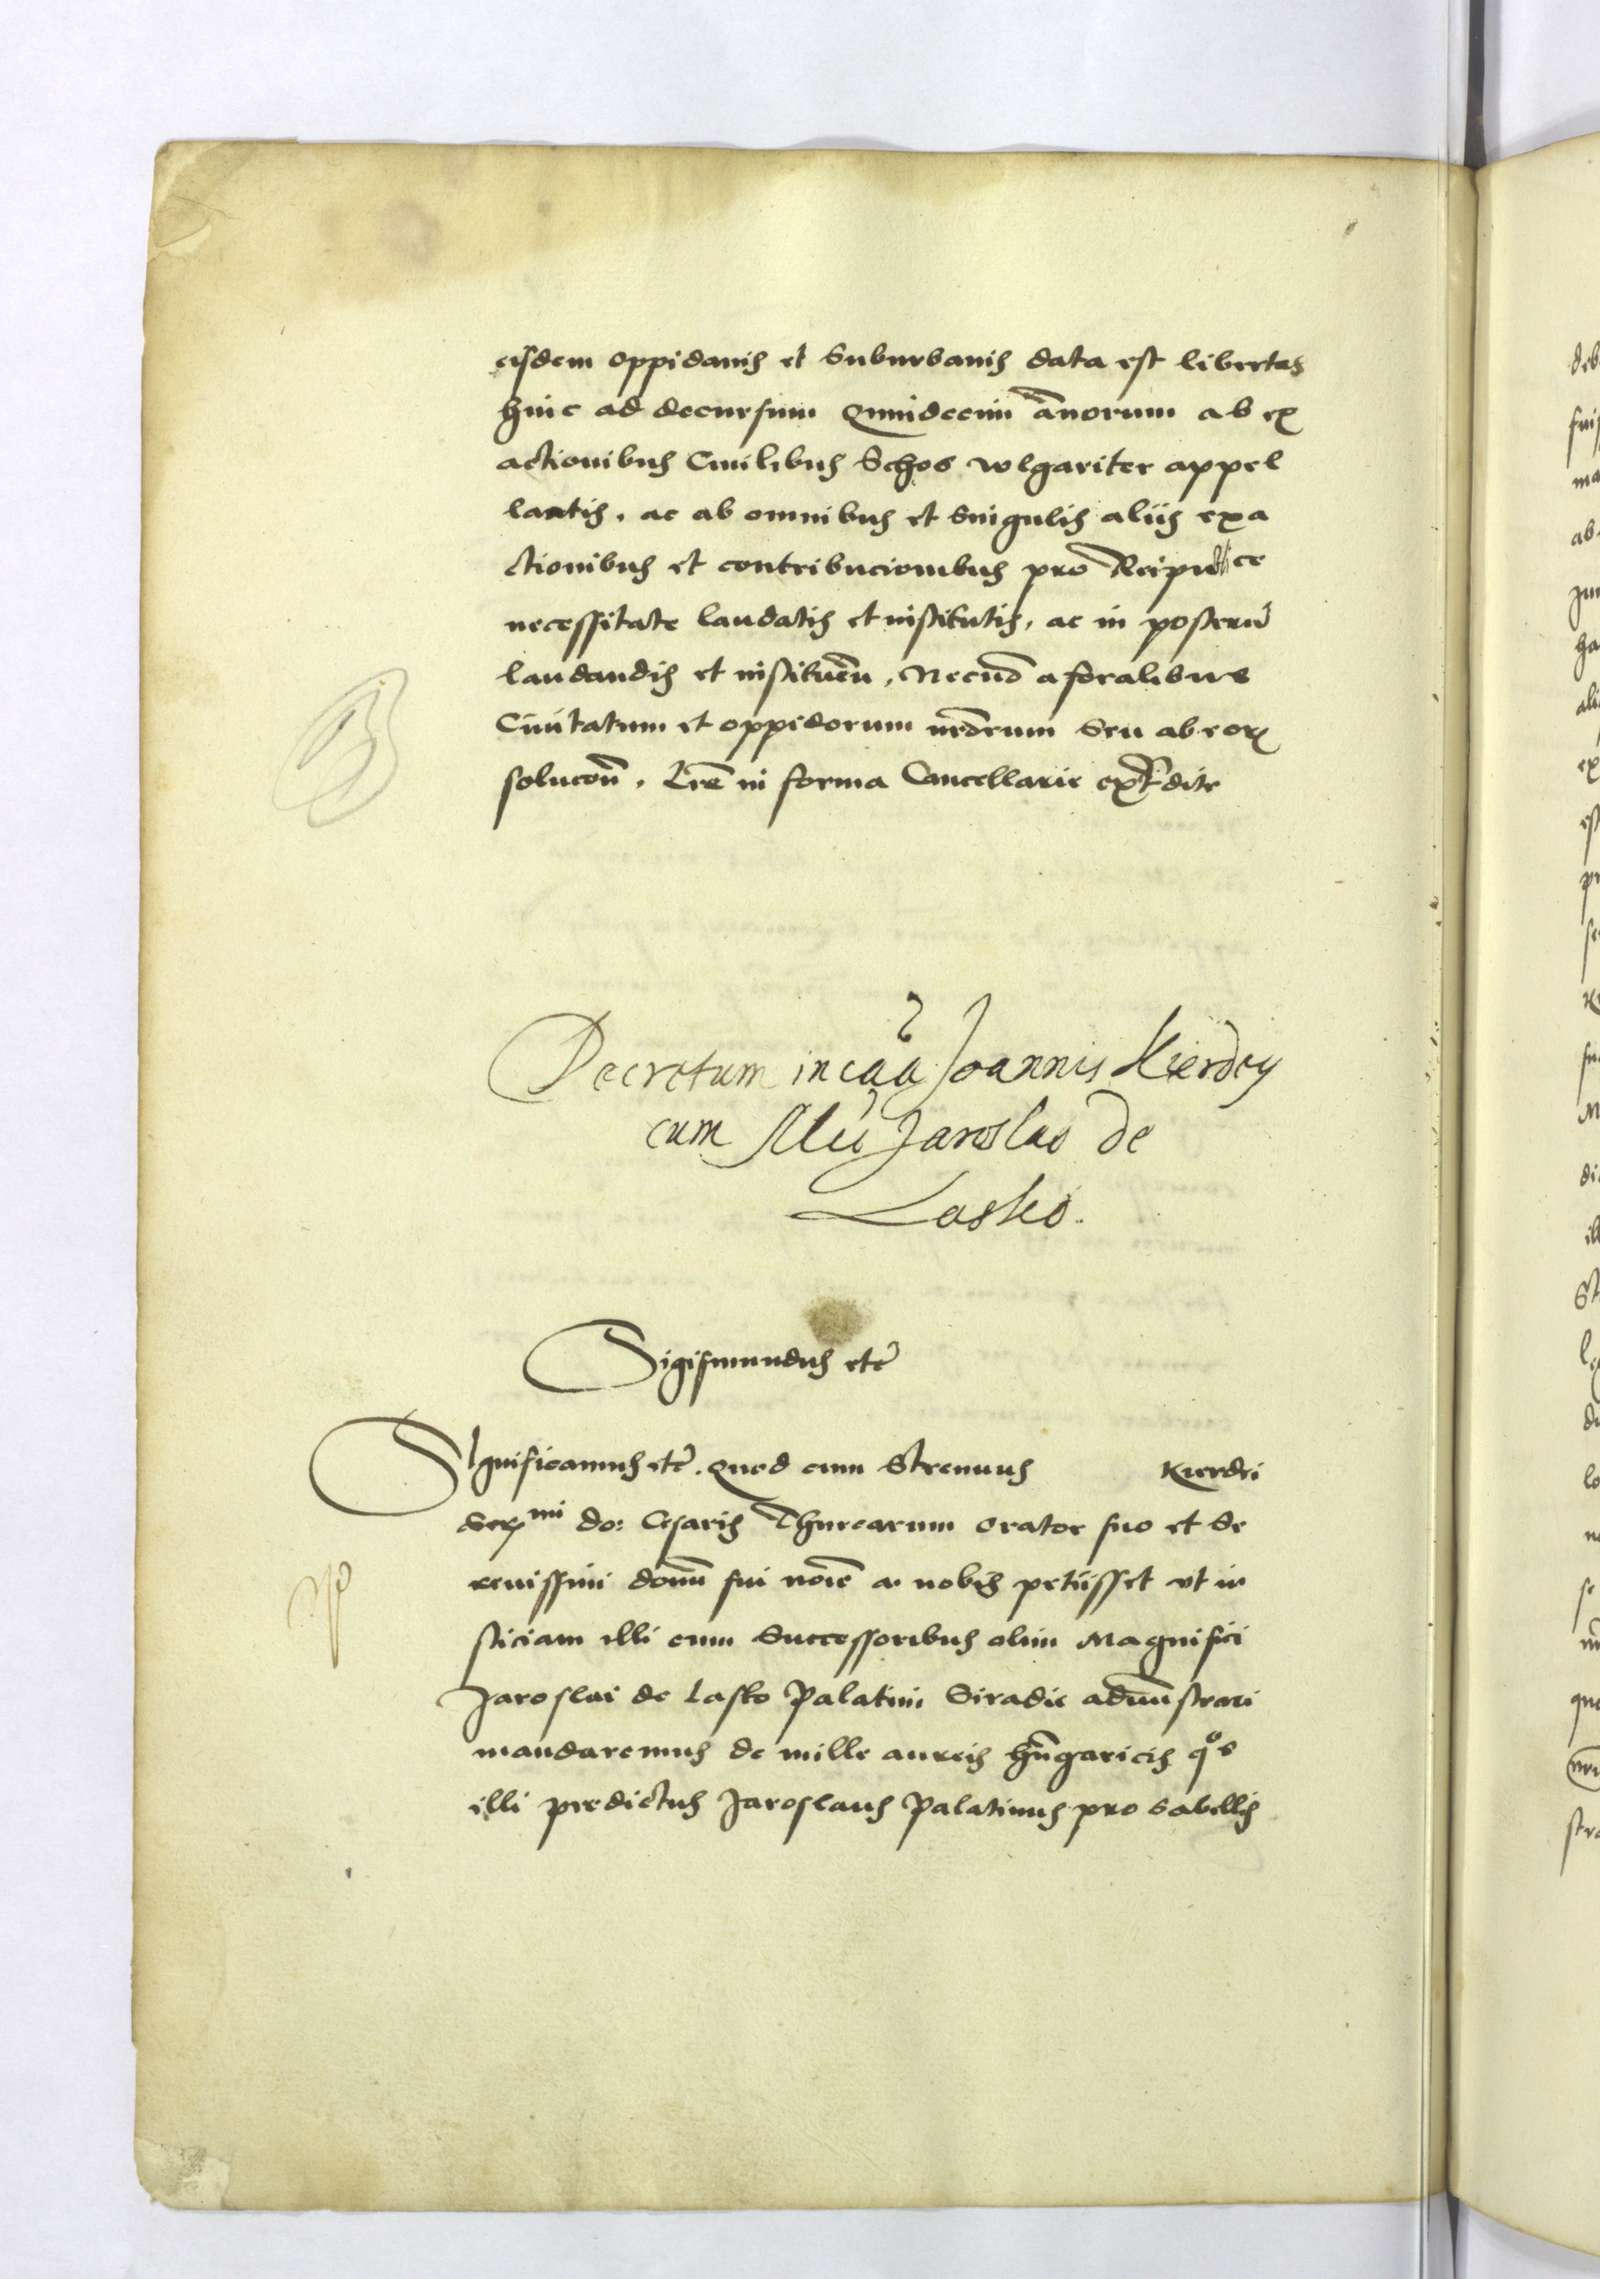 eisdem oppidanis et Suburbanis data est libertas
hinc ad decursum Quindecim annorum ab ex
actionibus Civilibus Schos wlgariter appel
lantis. ac ab omnibus et Singulis aliis exa
ctionibus et contribucionibus pro Reipublice
necessitate laudatis et institutis, ac in posterum
laudandis et instituen, Necnon a foralibus
Civitatum et oppidorum nostrorum Seu ab eorum
solucion. Lre in forma Cancellarie expedite
Decretum in caa Joannis Kierdey
cum Jaroslao de
Lasko.
Sigismundus etc
Significamus etc. Quod cum Strenuus Kierdei
Sermi do: Cesaris Thurcarum Orator suo et Se
renissimi domini sui noie a nobis petiisset ut iu
sticiam illi cum Successoribus olim Magnifici
Jaroslai de Lasko Palatini Siradie administrari
mandaremus de mille aureis hungaricis quos
illi predictus Jaroslaus Palatinus pro Sabellis